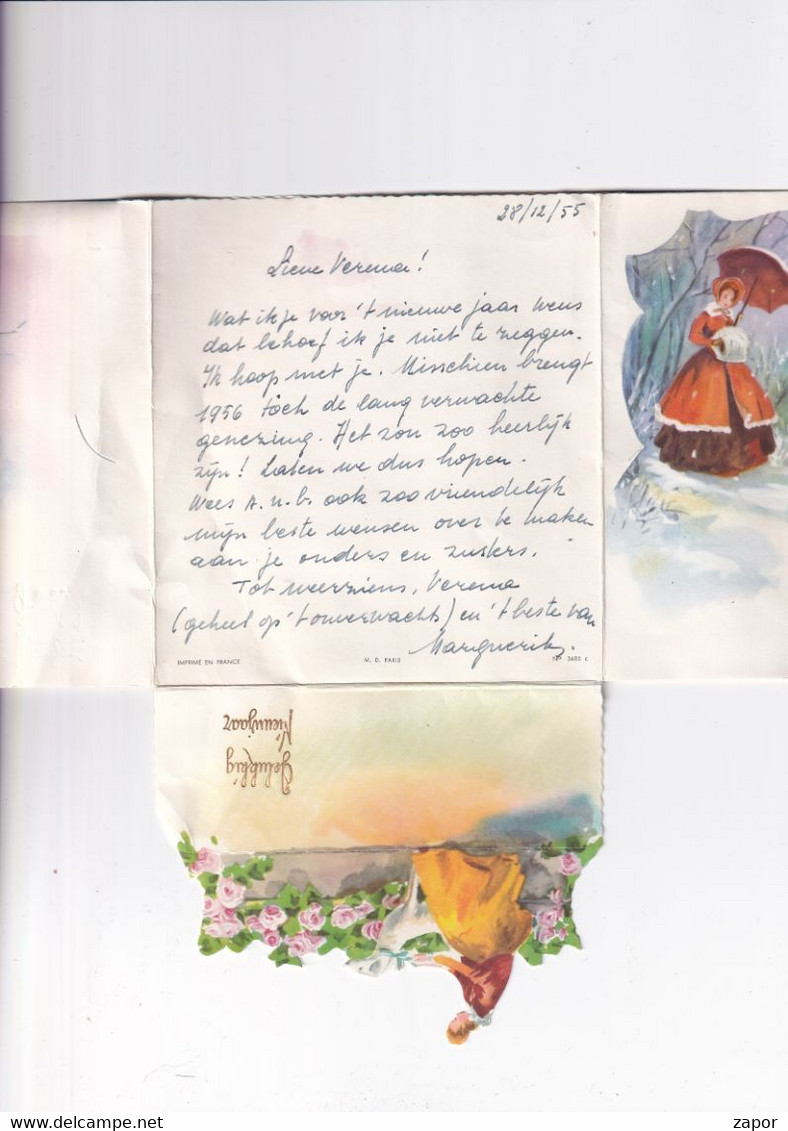 28/12/55
Lieve Verena!
Wat ik je voor 't nieuwe jaar wens
dat behoef ik je niet te zeggen.
Ik hoop met je. Misschien brengt
1956 toch de lang verwachte
genezing. Het zou zoo heerlijk
zijn! Laten we dus hopen.
Wees A.u.b. ook zoo vriendelijk
mijn beste wensen over te maken
aan je ouders en zusters.
Tot weerziens, Verena
(geheel op 't onverwachts) en 't beste van
Marguerite.
IMPRIMÉ EN FRANCE M. D. PARIS N° 3685 C
Gelukkig
Nieuwjaar
delcampe.net
zapor